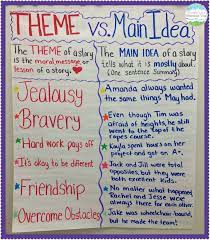 THEME vs. Main Idea
The THEME of a story
is the moral, message, or
lesson of a story.
Jealousy
Bravery
Hard work pays off
It's okay to be different
Friendship
Overcome Obstacles
The MAIN IDEA of a story
tells what it is mostly about.
(One sentence Summary)
Amanda always wanted
the same things May had.
Even though Tim was
afraid of heights, he still
went to the top of the
ropes course.
Kayla spent hours on her
project and got an A+.
Jack and Jill were total
opposites, but they were
both excellent kids.
No matter what happened
Rachel and Jesse were
always there for each other.
Jake was wheelchair-bound,
but he made the team!